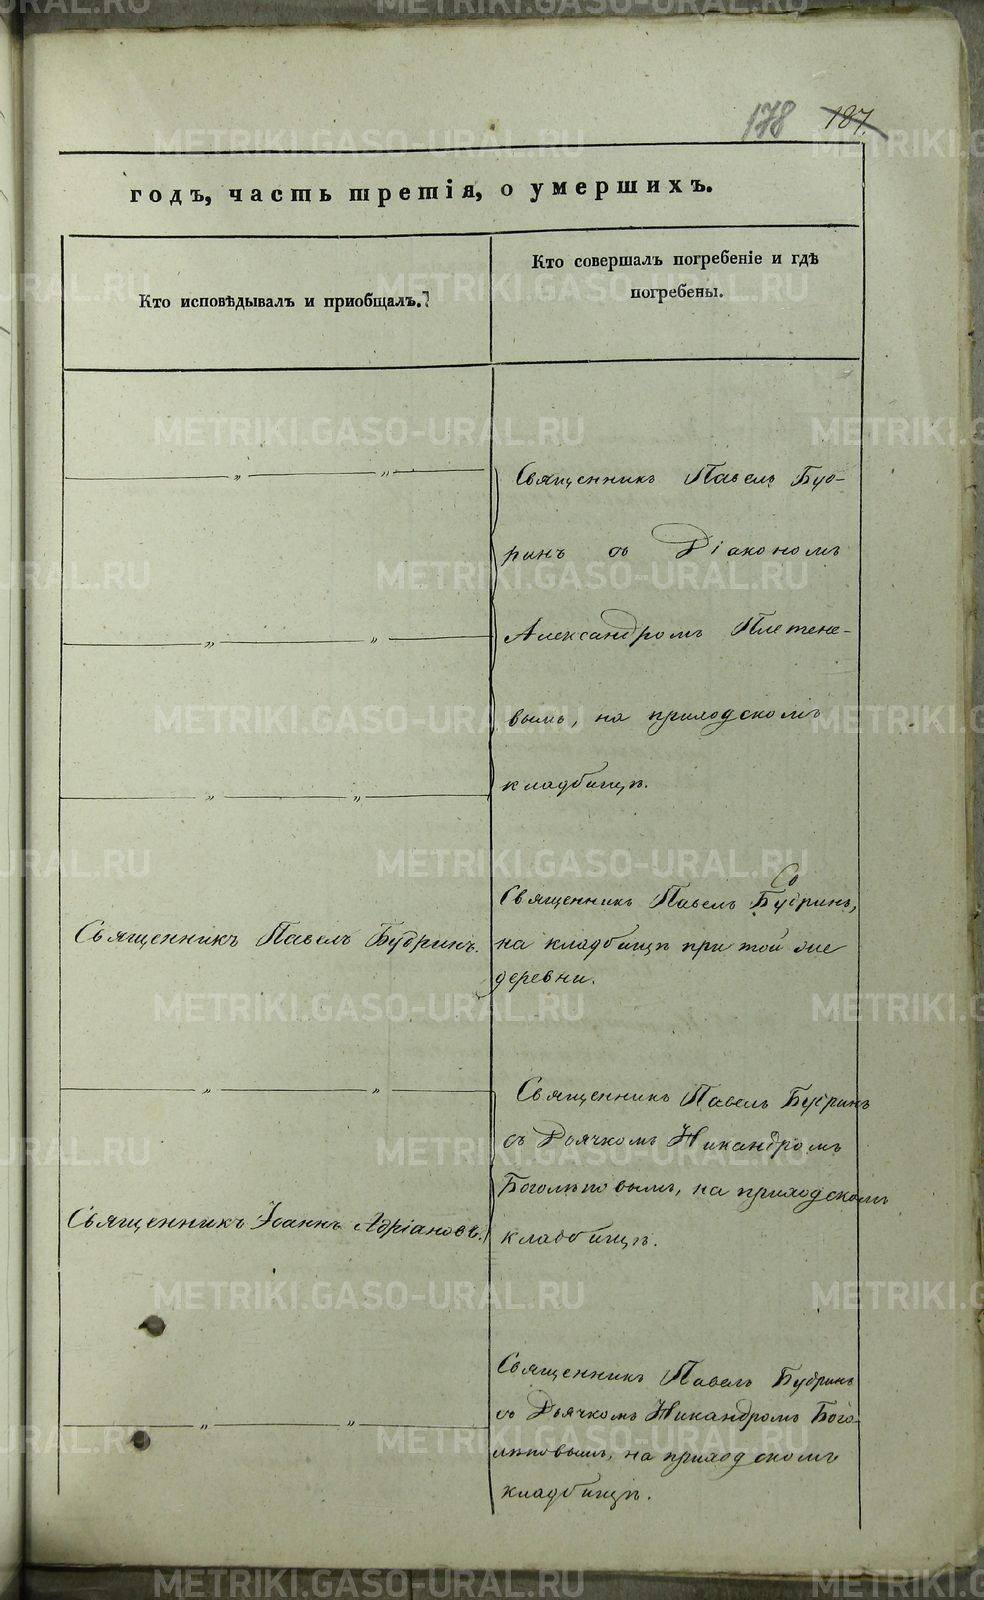 178 187.
годъ, часть третія, о умершихъ.
Кто исповѣдывалъ и пріобщалъ.
Кто совершалъ погребеніе и гдѣ
погребены.
Священникъ Павелъ Буд-
ринъ съ Діакономъ
Александромъ Плетене-
вымъ, на приходскомъ
кладбищѣ.
Священникъ Павелъ Будринъ.
Священникъ Павелъ Будринъ,
на кладбищѣ при той же
деревни.
Священникъ Павелъ Будринъ
съ Дьячкомъ Никандромъ
Боголѣповымъ, на приходскомъ
кладбищѣ.
Священникъ Іоаннъ Адріановъ.
Священникъ Павелъ Будринъ
съ Дьячкомъ Никандромъ Бого-
лѣповымъ, на приходскомъ
кладбищѣ.
METRIKI.GASO-URAL.RU